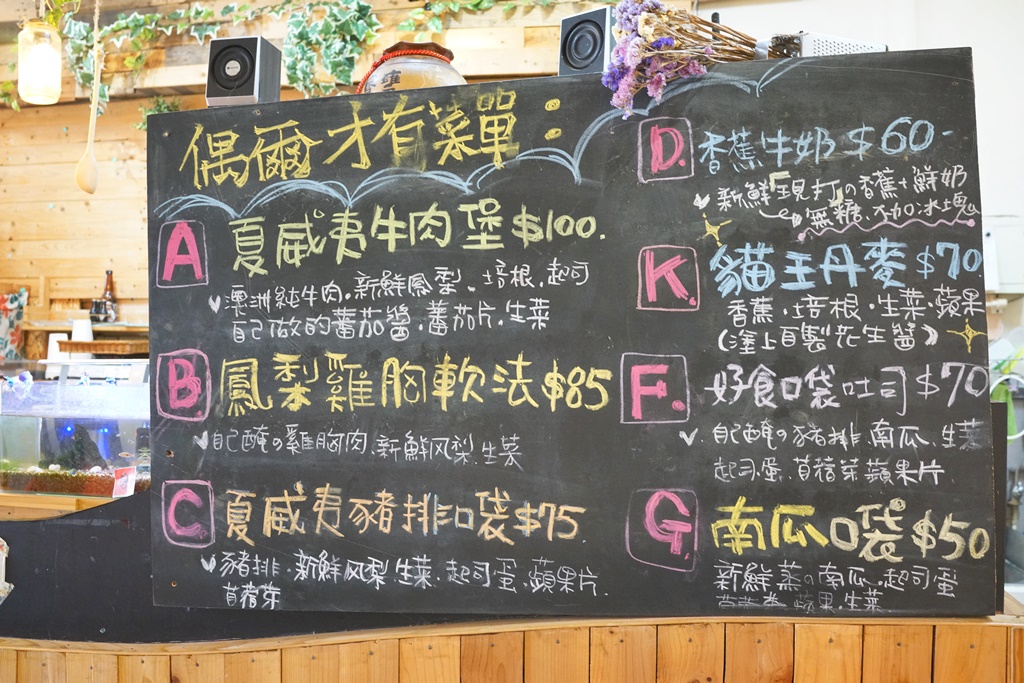 偶爾才有菜單：
A 夏威夷牛肉堡$100.
澳洲純牛肉.新鮮鳳梨、培根.起司
自己做的蕃茄醬.蕃茄片.生菜
B 鳳梨雞胸軟法$85
自己醃の雞胸肉.新鮮风梨.生菜
C 夏威夷豬排口袋$75.
豬排.新鮮风梨.生菜.起司蛋.蘋果片.
苜蓿芽
D. 香蕉牛奶 $60-
新鮮現打の香蕉+鮮奶
無糖.不加冰塊
K. 貓王丹麥$70
香蕉.培根.生菜.蘋果
(塗上自製花生醬)
F. 好食口袋吐司$70
自己醃の豬排.南瓜.生菜
起司蛋.苜蓿芽蘋果片.
G 南瓜口袋$50
新鮮蒸の南瓜.起司蛋
苜蓿芽 蘋果.生菜